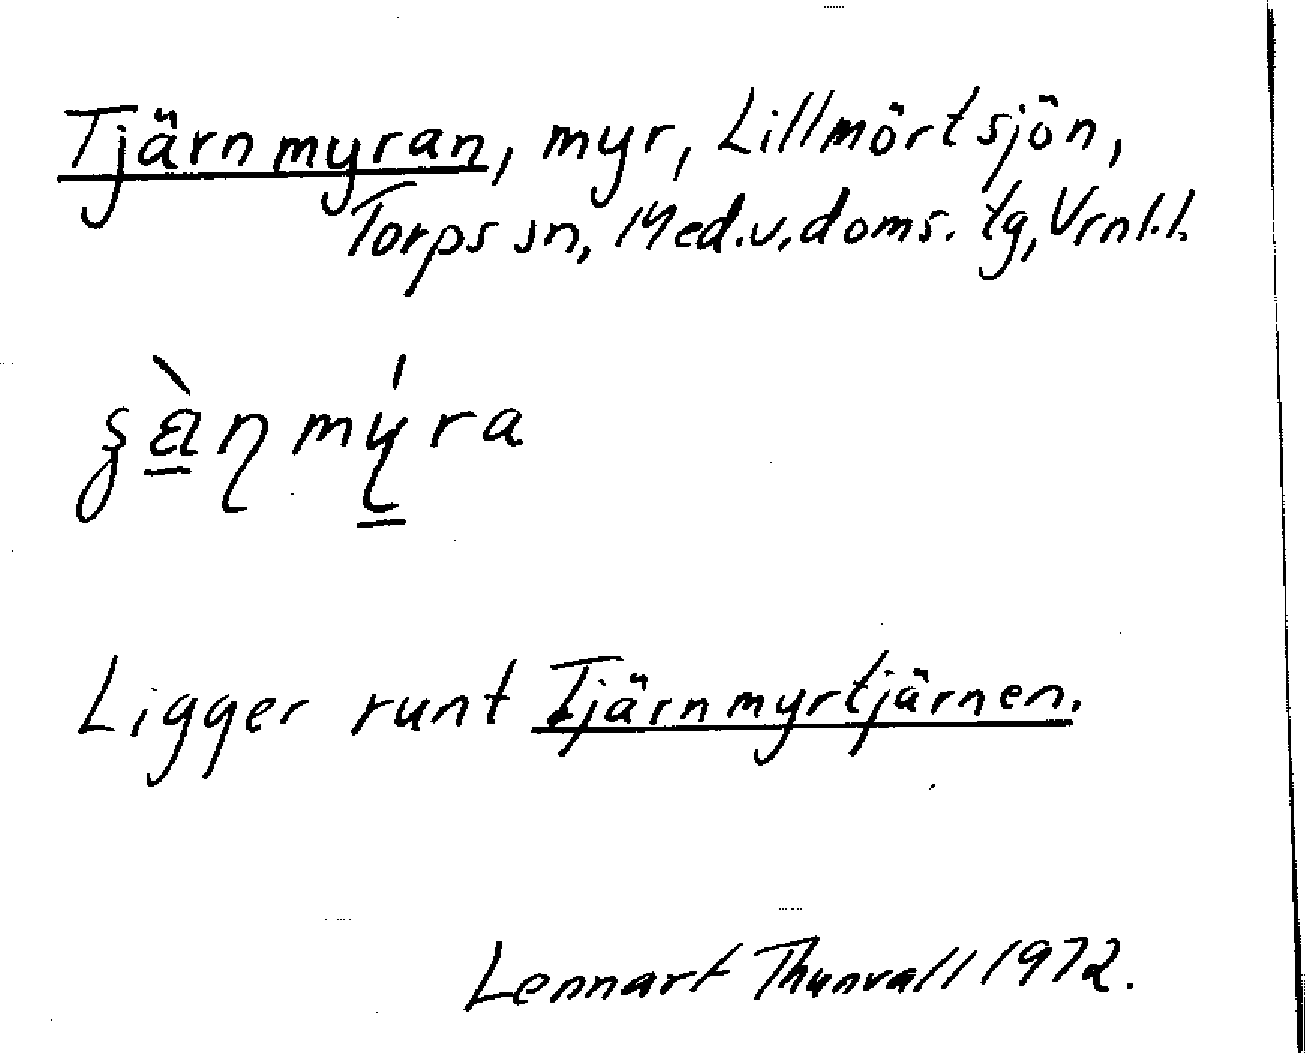 Tjärnmyran, myr, Lillmörtsjön,
Torps sn, Med.v.doms. tg, Vrnl.l.
Ligger runt Tjärnmyrtjärnen.
Lennart Thunvall 1972.